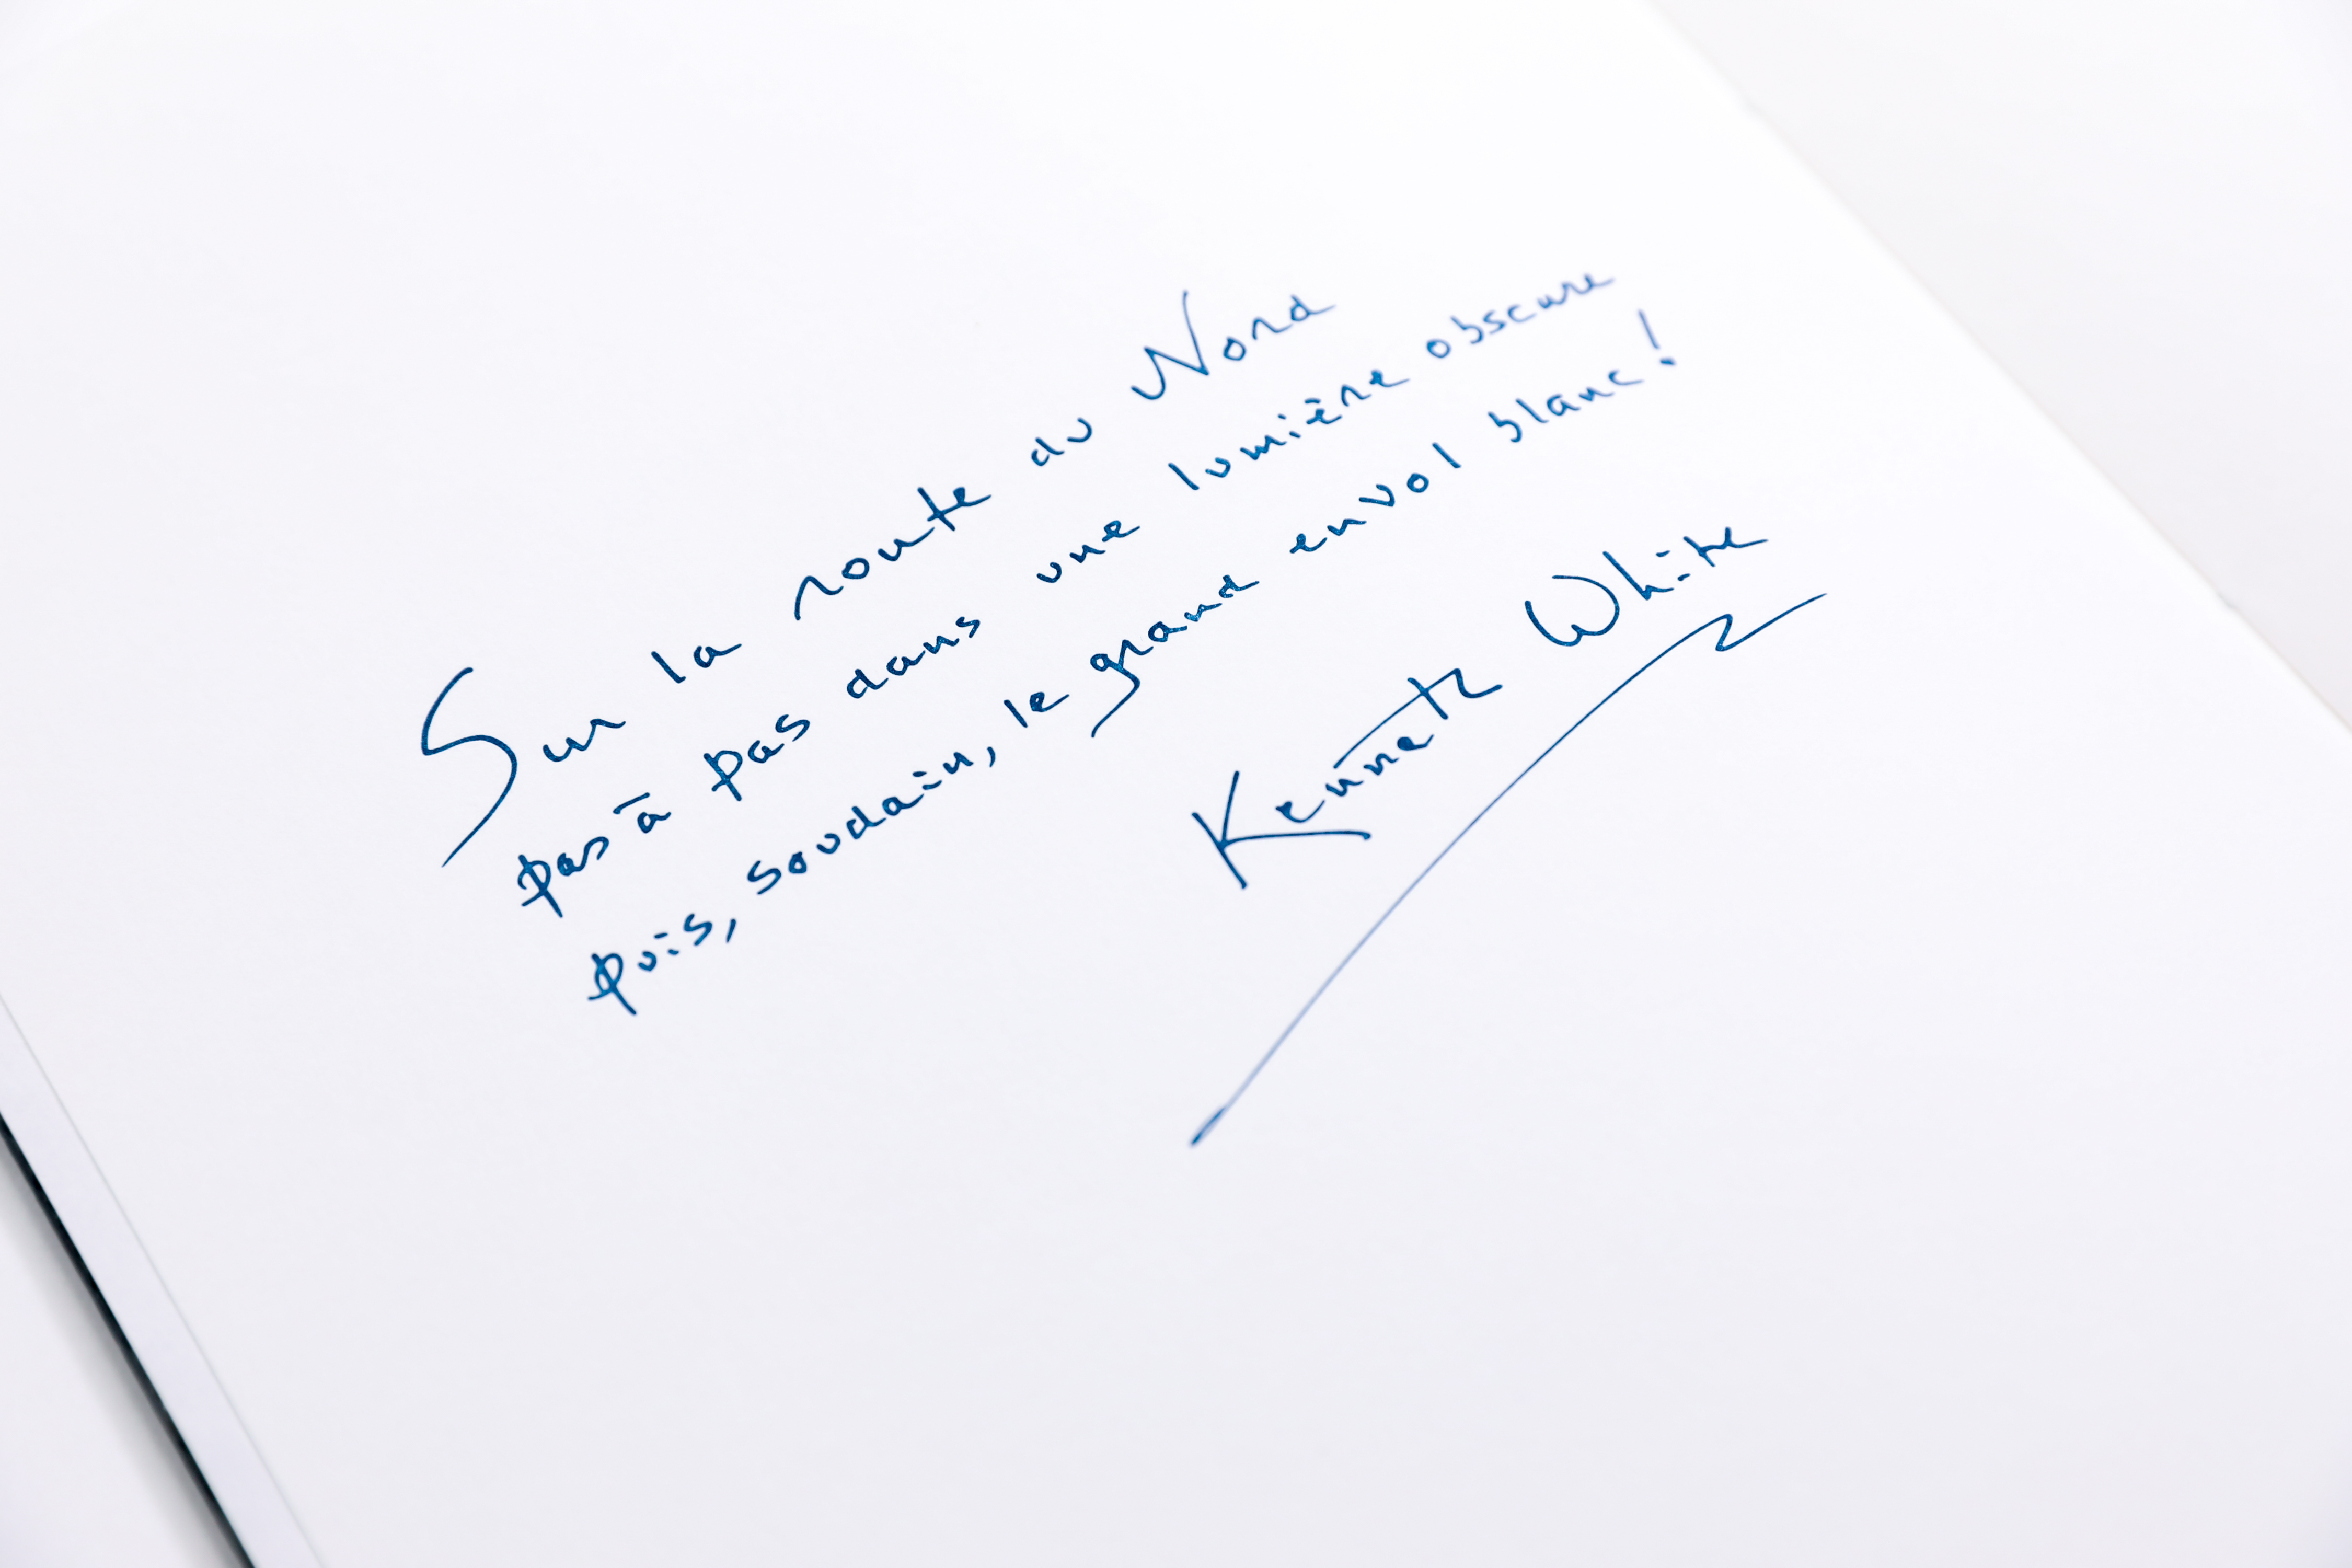 Sur la route du Nord
pas à pas dans une lumière obscure
puis, soudain, le grand envol blanc !
Kenneth White